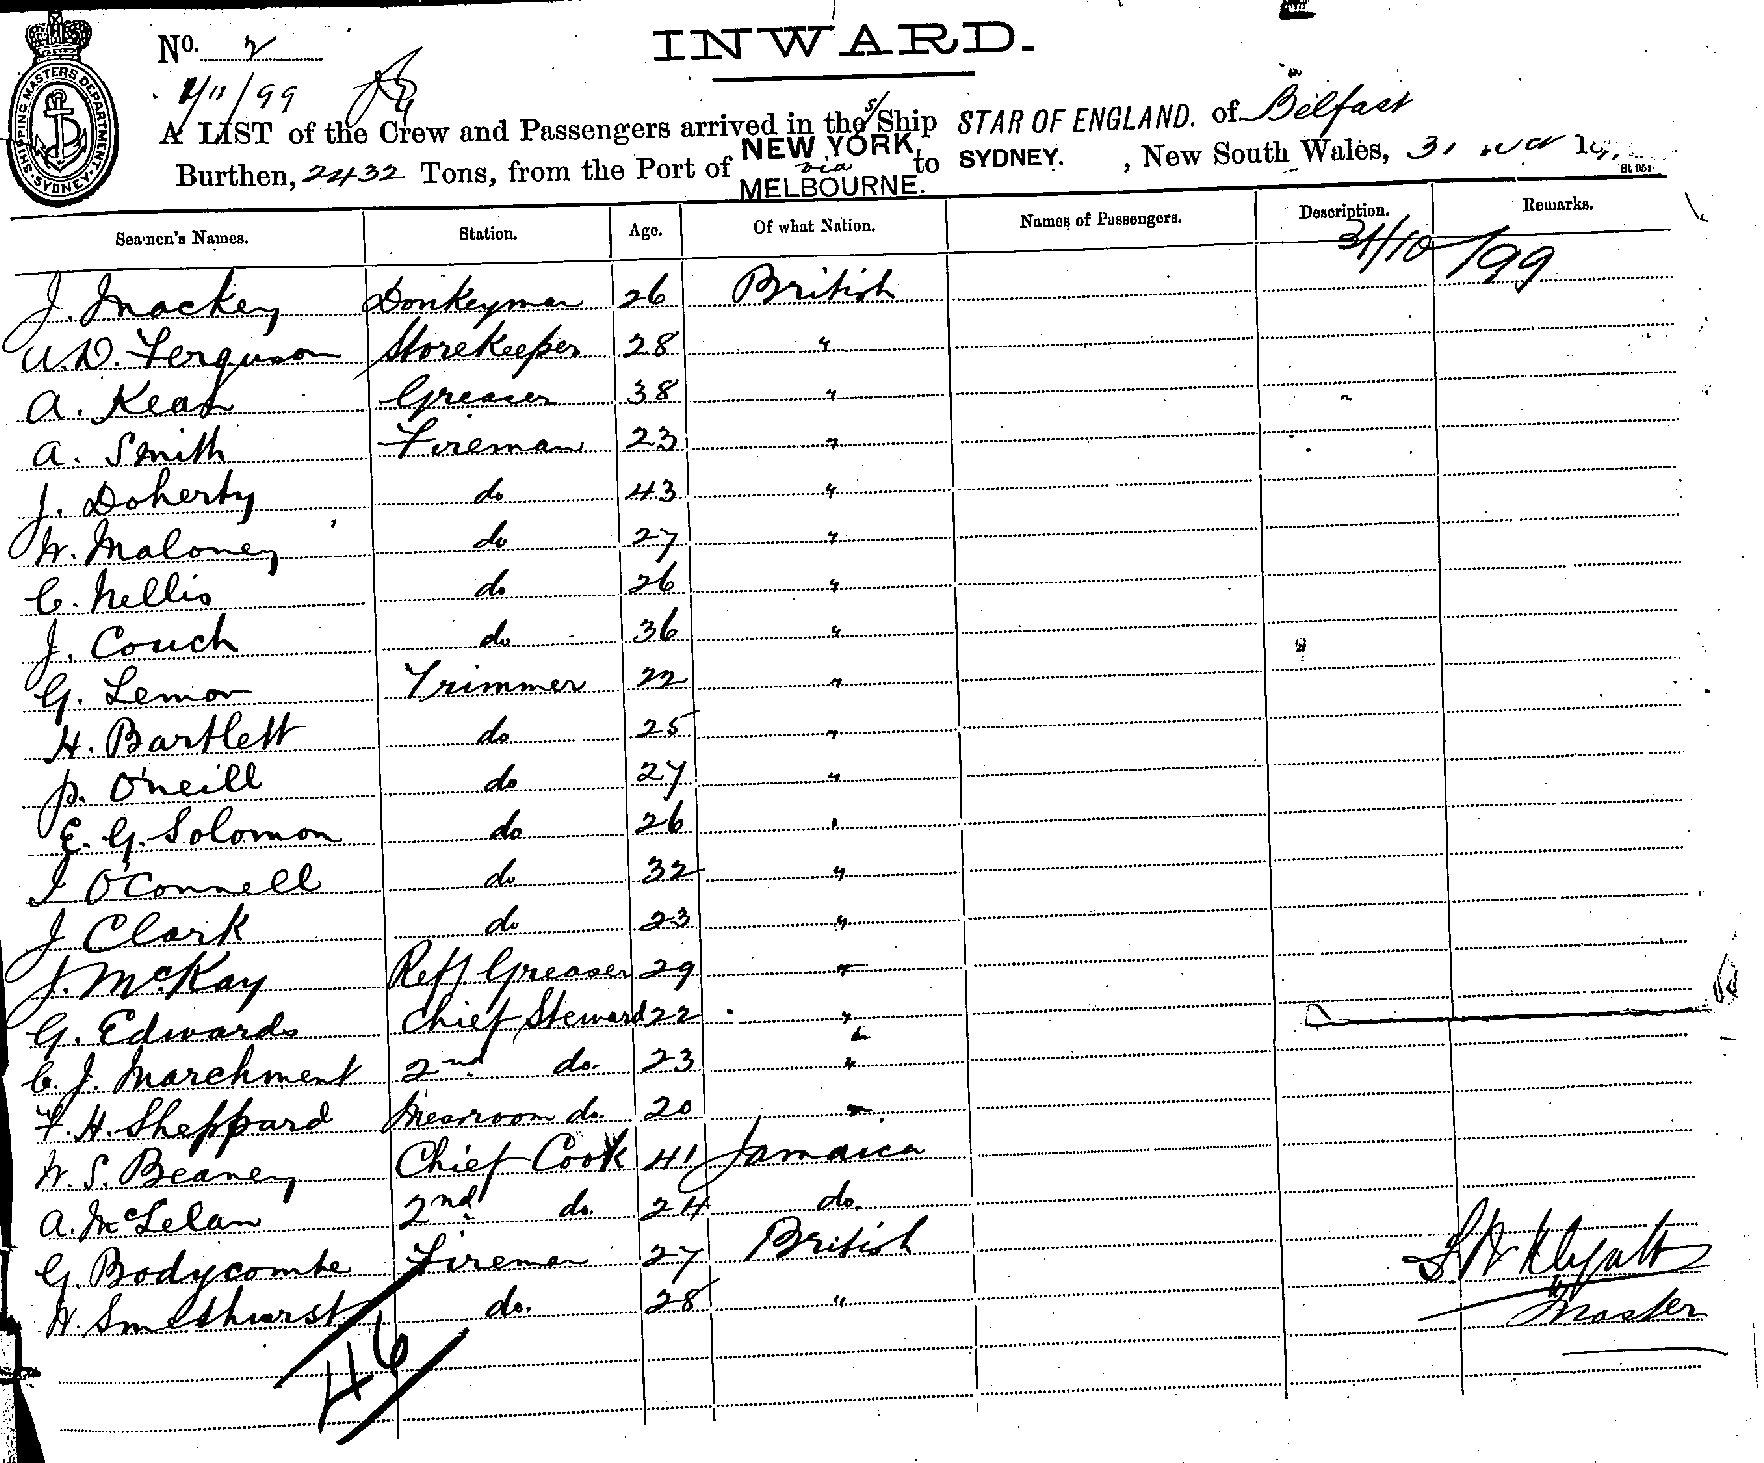 SHIPPING MASTERS DEPARTMENT SYDNEY
No. 2
INWARD.
1/11/99
A LIST of the Crew and Passengers arrived in the s/Ship STAR OF ENGLAND. of Belfast
Burthen, 2432 Tons, from the Port of NEW YORK, via MELBOURNE. to SYDNEY. , New South Wales, 31
Seamen's Names. Station. Age. Of what Nation. Names of Passengers. Description. Remarks.
31/10/99
J. Mackey Donkeyman 26 British
W.D. Ferguson Storekeeper 28 "
A. Kean Greaser 38 "
A. Smith Fireman 23 "
J. Doherty do 43 "
W. Maloney do 27 "
C. Nellis do 26 "
J. Couch do 36 "
G. Lemon Trimmer 22 "
H. Bartlett do 25 "
P. O'neill do 27 "
E. G. Solomon do 26 "
J O'Connell do 32 "
J Clark do 23 "
J. McKay Refr Greaser 29 "
G. Edwards Chief Steward 22 "
C. J. Marchment 2nd do. 23 "
F. H. Sheppard Messroom do. 20 "
W. S. Beaney Chief Cook 41 Jamaica
A. McLelan 2nd do. 24 do.
G. Bodycombe Fireman 27 British
H. Smethurst do. 28 "
46
Master